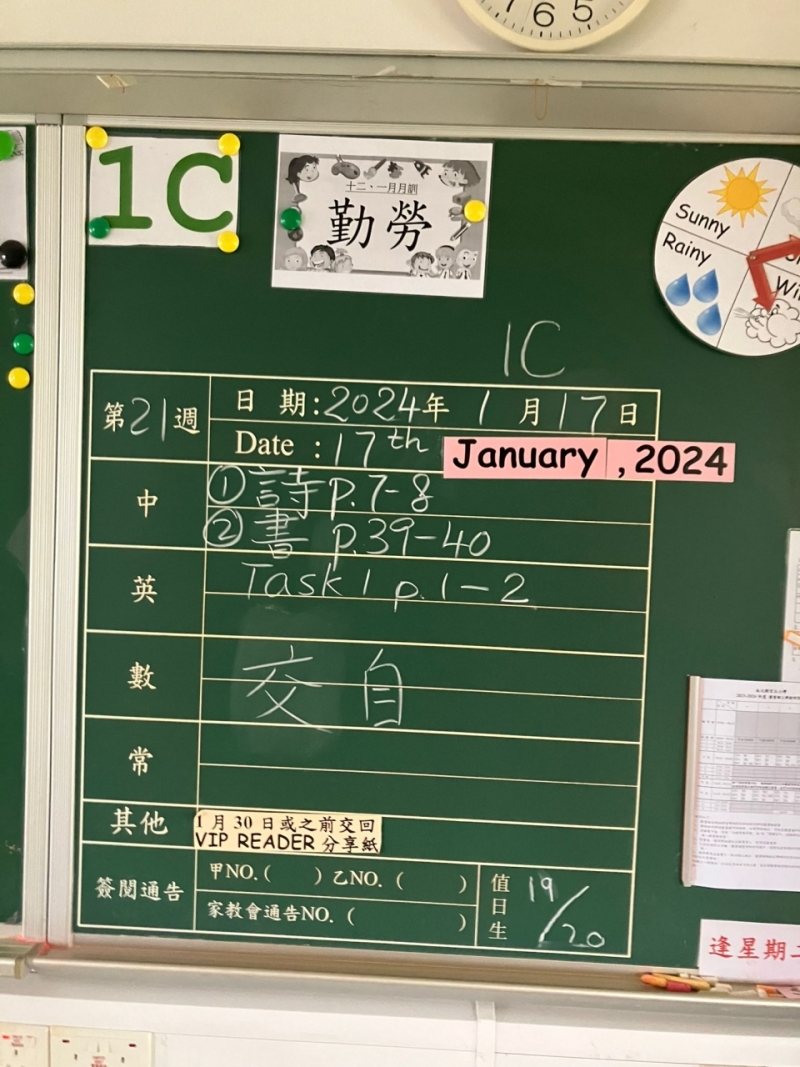 7 6 5
1C
十二・一月月訓
勤勞
Sunny
Rainy
1C
第21週
日 期：2024年 1 月17日
Date ：17th January , 2024
中
① 詩 p.7-8
② 書 p.39-40
英
Task 1 p.1-2
數
交 自
常
其他
1 月 30 日或之前交回
VIP READER 分享紙
簽閱通告
甲NO.( ) 乙NO. ( )
家教會通告NO. ( )
值日生
19/20
逢星期二